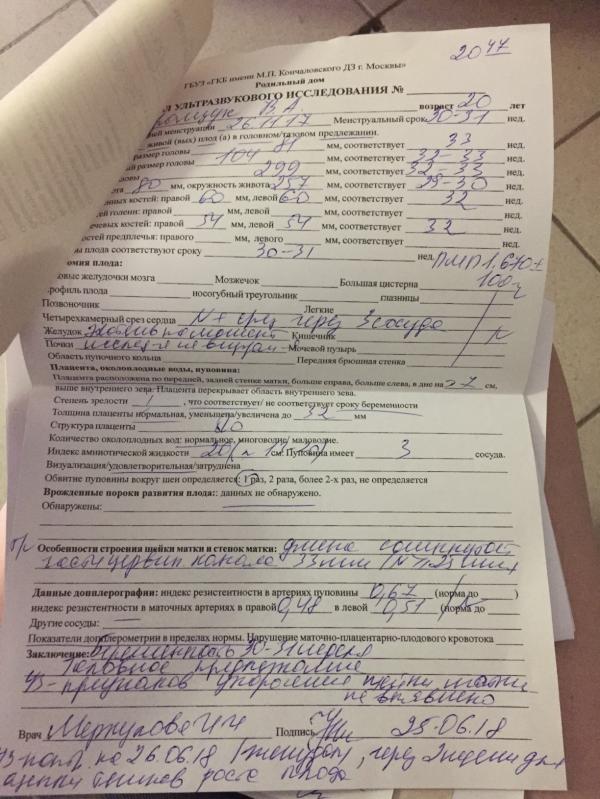 20 47
ГБУЗ «ГКБ имени М.П. Кончаловского ДЗ г. Москвы»
Родильный дом
Л УЛЬТРАЗВУКОВОГО ИССЛЕДОВАНИЯ №
В А возраст 20 лет
ней менструации 26.11.17 Менструальный срок 30-31 нед.
живой (вых) плод (а) в головном/тазовом предлежании.
размер головы 81 мм, соответствует 33 нед.
ый размер головы 104 мм, соответствует 32-33 нед.
головы 299 мм, соответствует 32-33 нед.
ота 80 мм, окружность живота 257 мм, соответствует 29-30 нед.
енных костей: правой 60 мм, левой 60 мм, соответствует 32 нед.
тей голени: правой мм, левой мм, соответствует нед.
чевых костей: правой 54 мм, левой 54 мм, соответствует 32 нед.
остей предплечья: правого мм, левого мм, соответствует нед.
ы плода соответствуют сроку 30-31 нед. ПМП 1.670±
омия плода: 100 г
овые желудочки мозга Мозжечок Большая цистерна
рофиль плода носогубный треугольник глазницы
Позвоночник Легкие
Четырехкамерный срез сердца N + срез через 3 сосуда
Желудок Кишечник N
Почки Мочевой пузырь
Область пупочного кольца Передняя брюшная стенка
Плацента, околоплодные воды, пуповина:
Плацента расположена по передней, задней стенке матки, больше справа, больше слева, в дне на 7 см,
выше внутреннего зева. Плацента перекрывает область внутреннего зева.
Степень зрелости I, что соответствует/ не соответствует сроку беременности
Толщина плаценты нормальная, уменьшена/увеличена до 32 мм
Структура плаценты
Количество околоплодных вод: нормальное, многоводие/ маловодие.
Индекс амниотической жидкости см. Пуповина имеет 3 сосуда.
Визуализация/удовлетворительная/затруднена
Обвитие пуповины вокруг шеи определяется: 1 раз, 2 раза, более 2-х раз, не определяется
Врожденные пороки развития плода:: данных не обнаружено.
Обнаружены:
Особенности строения шейки матки и стенок матки: длина сомкнутой
части цервик. канала 33 мм (N > 25 мм)
Данные допплерографии: индекс резистентности в артериях пуповины 0,67 (норма до )
индекс резистентности в маточных артериях в правой 0,48 в левой 0,51 (норма до )
Другие сосуды:
Показатели допплерометрии в пределах нормы. Нарушение маточно-плацентарно-плодового кровотока
Заключение: Беременность 30-31 неделя
Головное предлежание
УЗ-признаков укорочения шейки матки
не выявлено
Врач Подпись 25.06.18
на 26.06.18 (желудок), через 2 недели для
оценки темпов роста плода